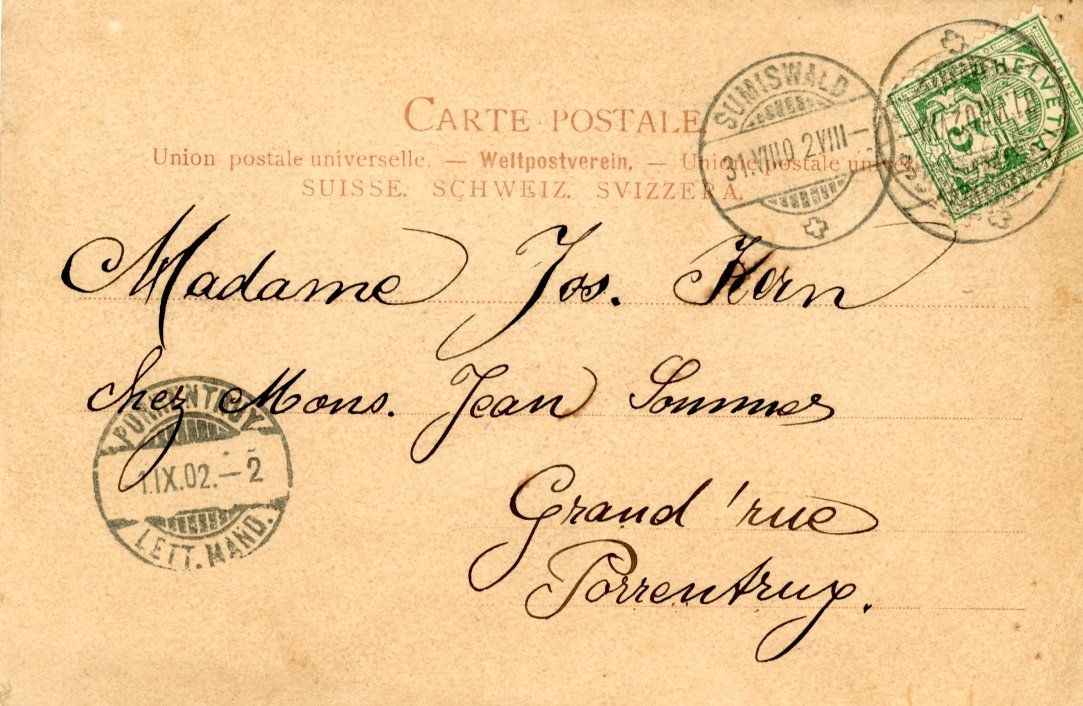 CARTE POSTALE
Union postale universelle. — Weltpostverein. — Unione postale univers
SUISSE. SCHWEIZ. SVIZZERA.
SUMISWALD
31.VIII.02VIII–
HELVETIA
5
Madame Jos. Kern
chez Mons. Jean Sommer
Grand'rue
Porrentruy.
PORRENTRUY
1.IX.02.–2
LETT. MAND.